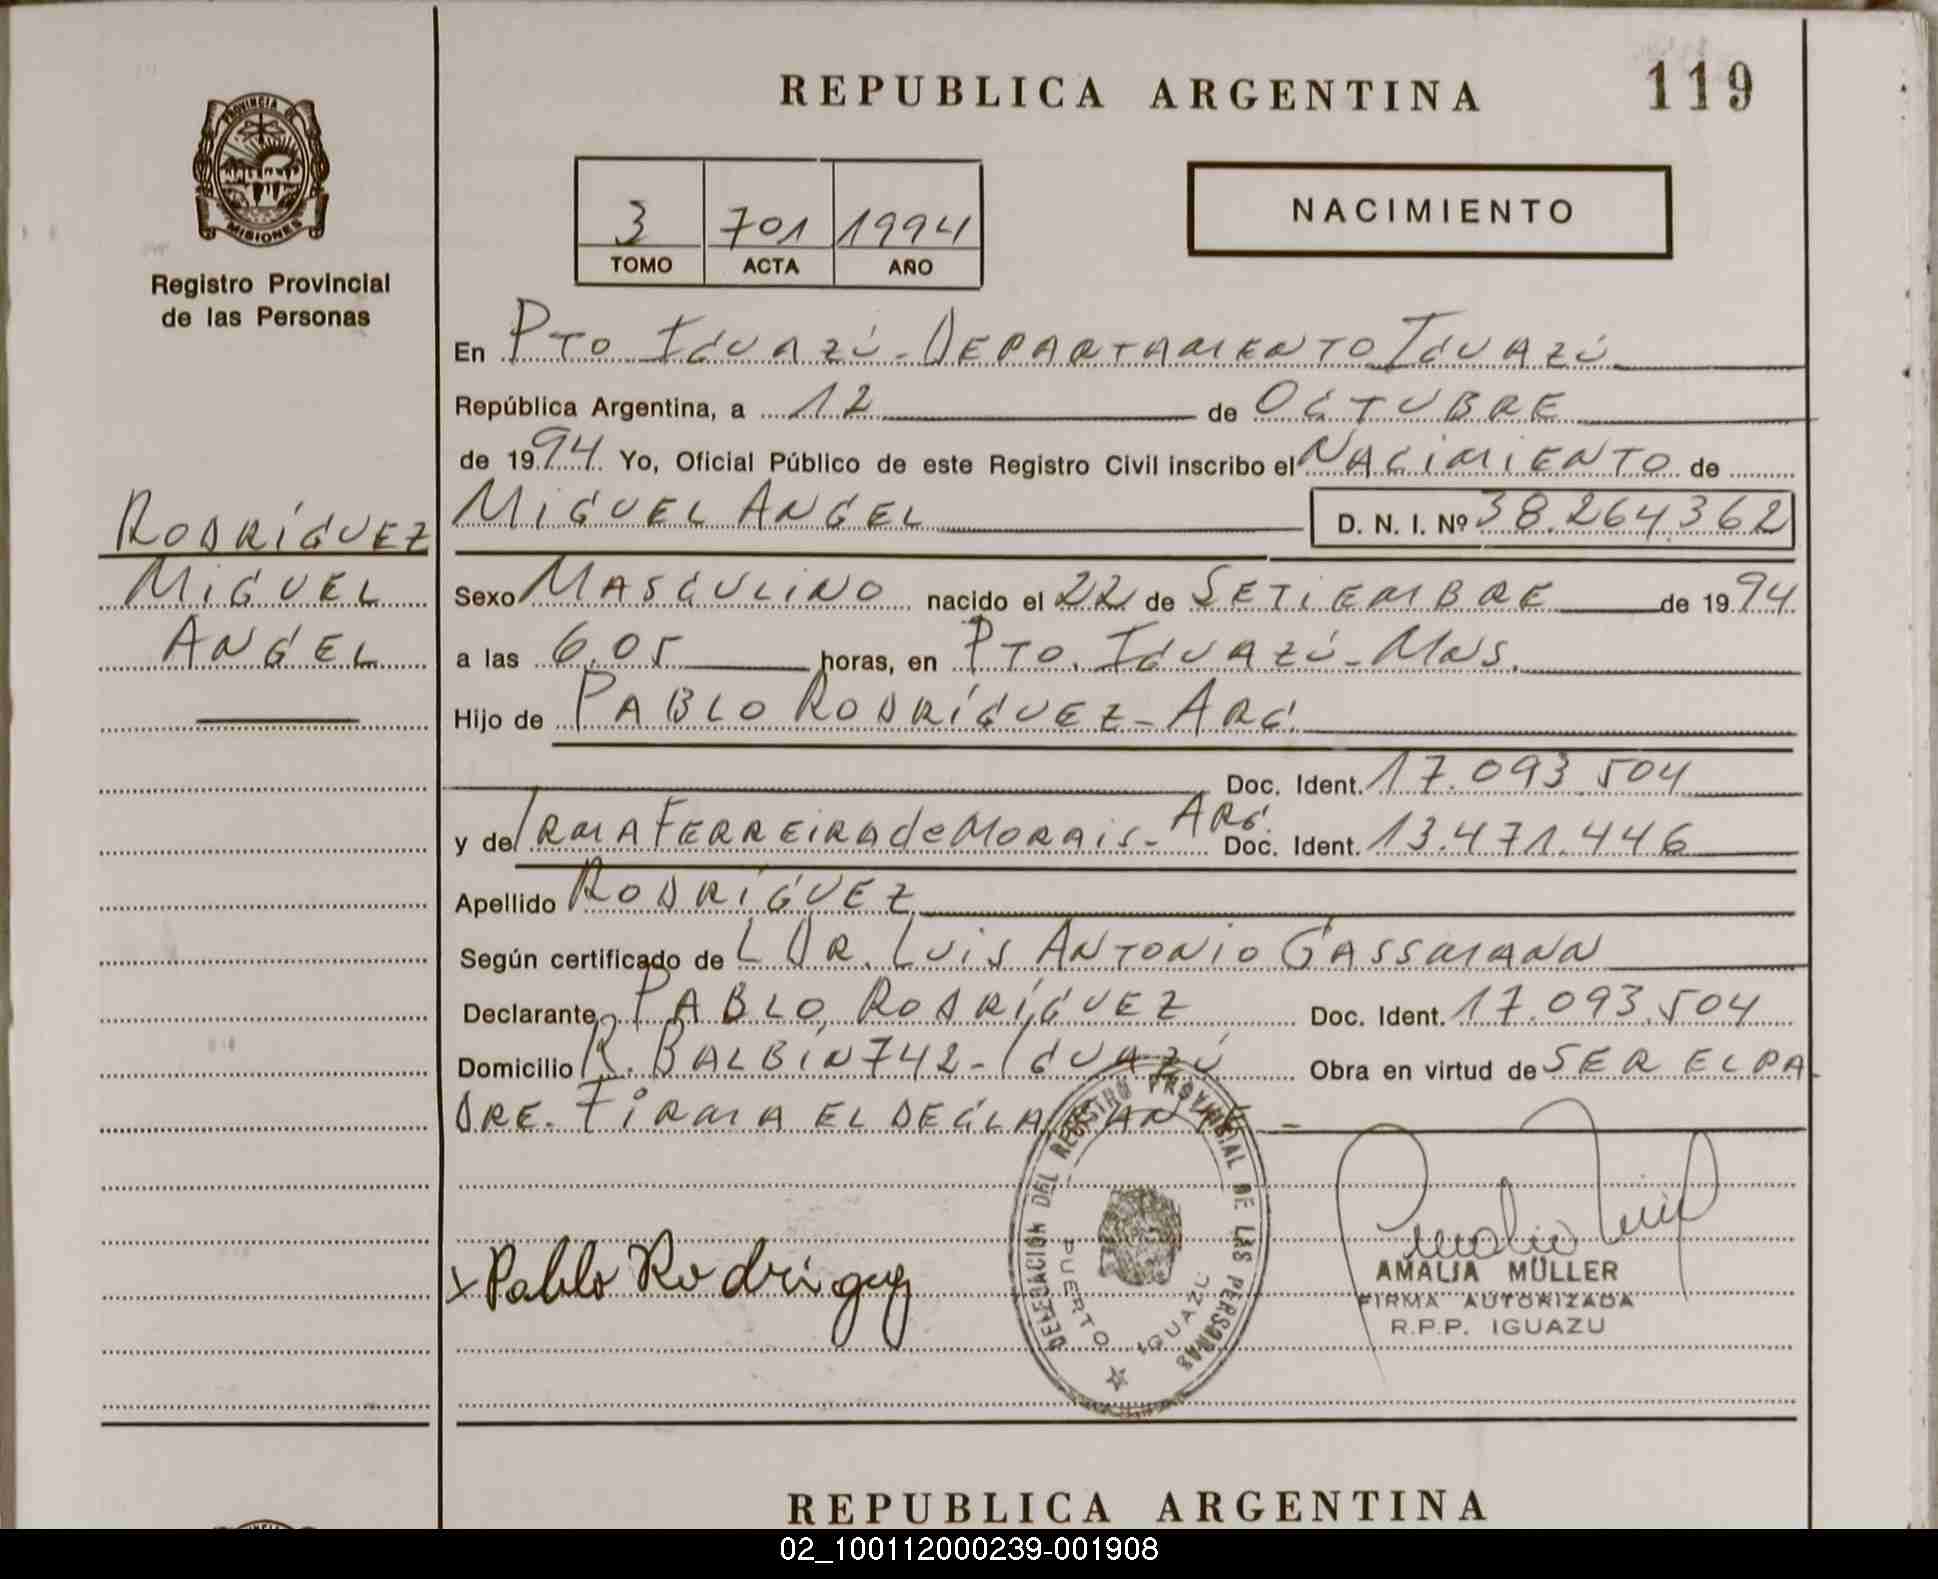 REPUBLICA ARGENTINA
119
PROVINCIA DE
MISIONES
Registro Provincial
de las Personas
3 701 1994
TOMO ACTA AÑO
NACIMIENTO
En PTO IGUAZÚ - DEPARTAMENTO IGUAZÚ
República Argentina, a 12 de OCTUBRE
de 1994 Yo, Oficial Público de este Registro Civil inscribo el NACIMIENTO de
RODRÍGUEZ
MIGUEL
ANGEL
MIGUEL ANGEL D. N. I. Nº 38.264.362
Sexo MASCULINO nacido el 22 de SETIEMBRE de 1994
a las 6.05 horas, en PTO. IGUAZÚ - MNS.
Hijo de PABLO RODRÍGUEZ - ARG.
Doc. Ident. 17.093.504
y de IRMA FERREIRA de MORAIS - ARG. Doc. Ident. 13.471.446
Apellido RODRÍGUEZ
Según certificado de L DR. LUIS ANTONIO GASSMANN
Declarante PABLO RODRÍGUEZ Doc. Ident. 17.093.504
Domicilio R. BALBÍN 742 - IGUAZÚ Obra en virtud de SER EL PA
DRE. FIRMA EL DECLARANTE -
x Pablo Rodriguez
DELEGACIÓN DEL REGISTRO PROVINCIAL DE LAS PERSONAS
PUERTO IGUAZU
AMALIA MÜLLER
FIRMA AUTORIZADA
R.P.P. IGUAZU
REPUBLICA ARGENTINA
02_100112000239-001908